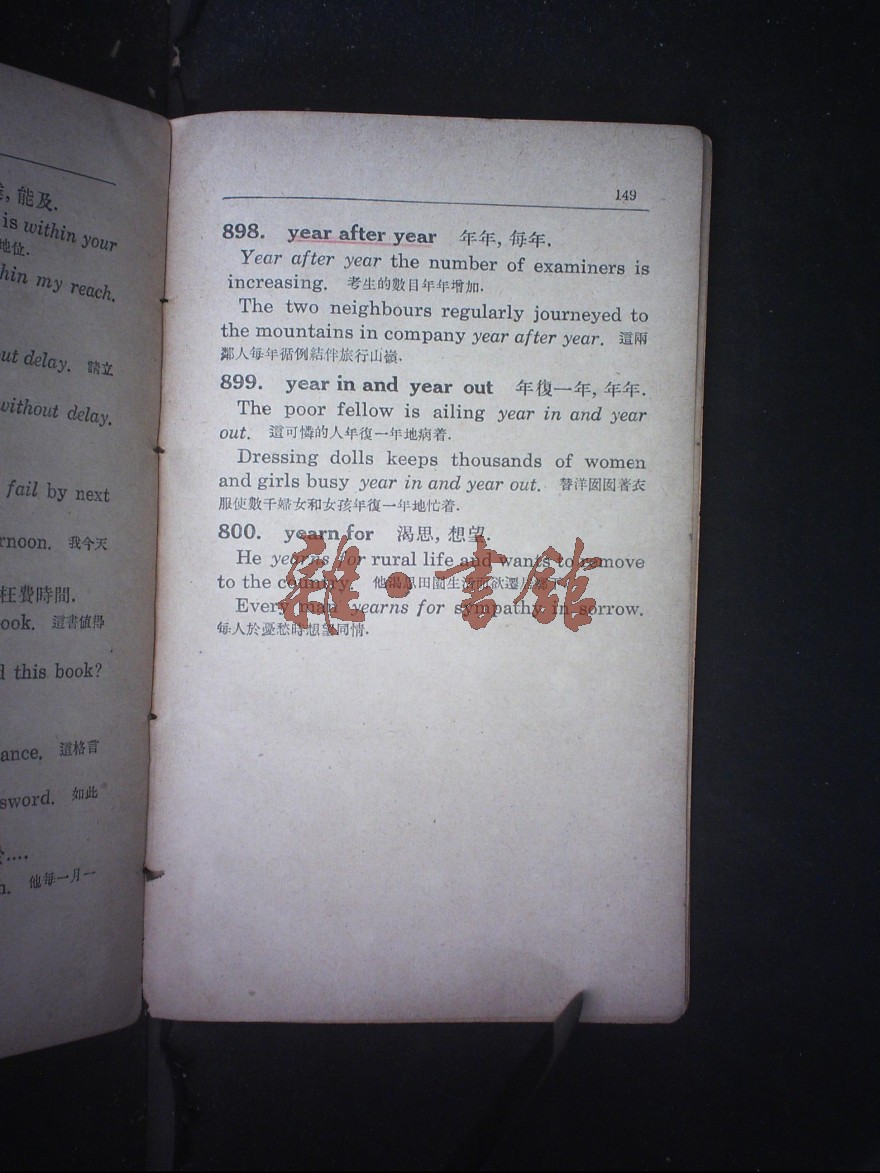 能及.
is within your
地位.
hin my reach.
out delay. 請立
without delay.
fail by next
rnoon. 我今天
枉費時間.
ook. 這書值得
d this book?
ance. 這格言
sword. 如此
....
n. 他每一月一
149
898. year after year 年年, 每年.
Year after year the number of examiners is
increasing. 考生的數目年年增加.
The two neighbours regularly journeyed to
the mountains in company year after year. 這兩
鄰人每年循例結伴旅行山嶺.
899. year in and year out 年復一年, 年年.
The poor fellow is ailing year in and year
out. 這可憐的人年復一年地病着.
Dressing dolls keeps thousands of women
and girls busy year in and year out. 替洋囡囡著衣
服使數千婦女和女孩年復一年地忙着.
800. yearn for 渴思, 想望.
He yearns for rural life and wants to remove
to the country. 他渴思田園生活而欲遷居鄉下.
Every man yearns for sympathy in sorrow.
每人於憂愁時想望同情.
雜·書館